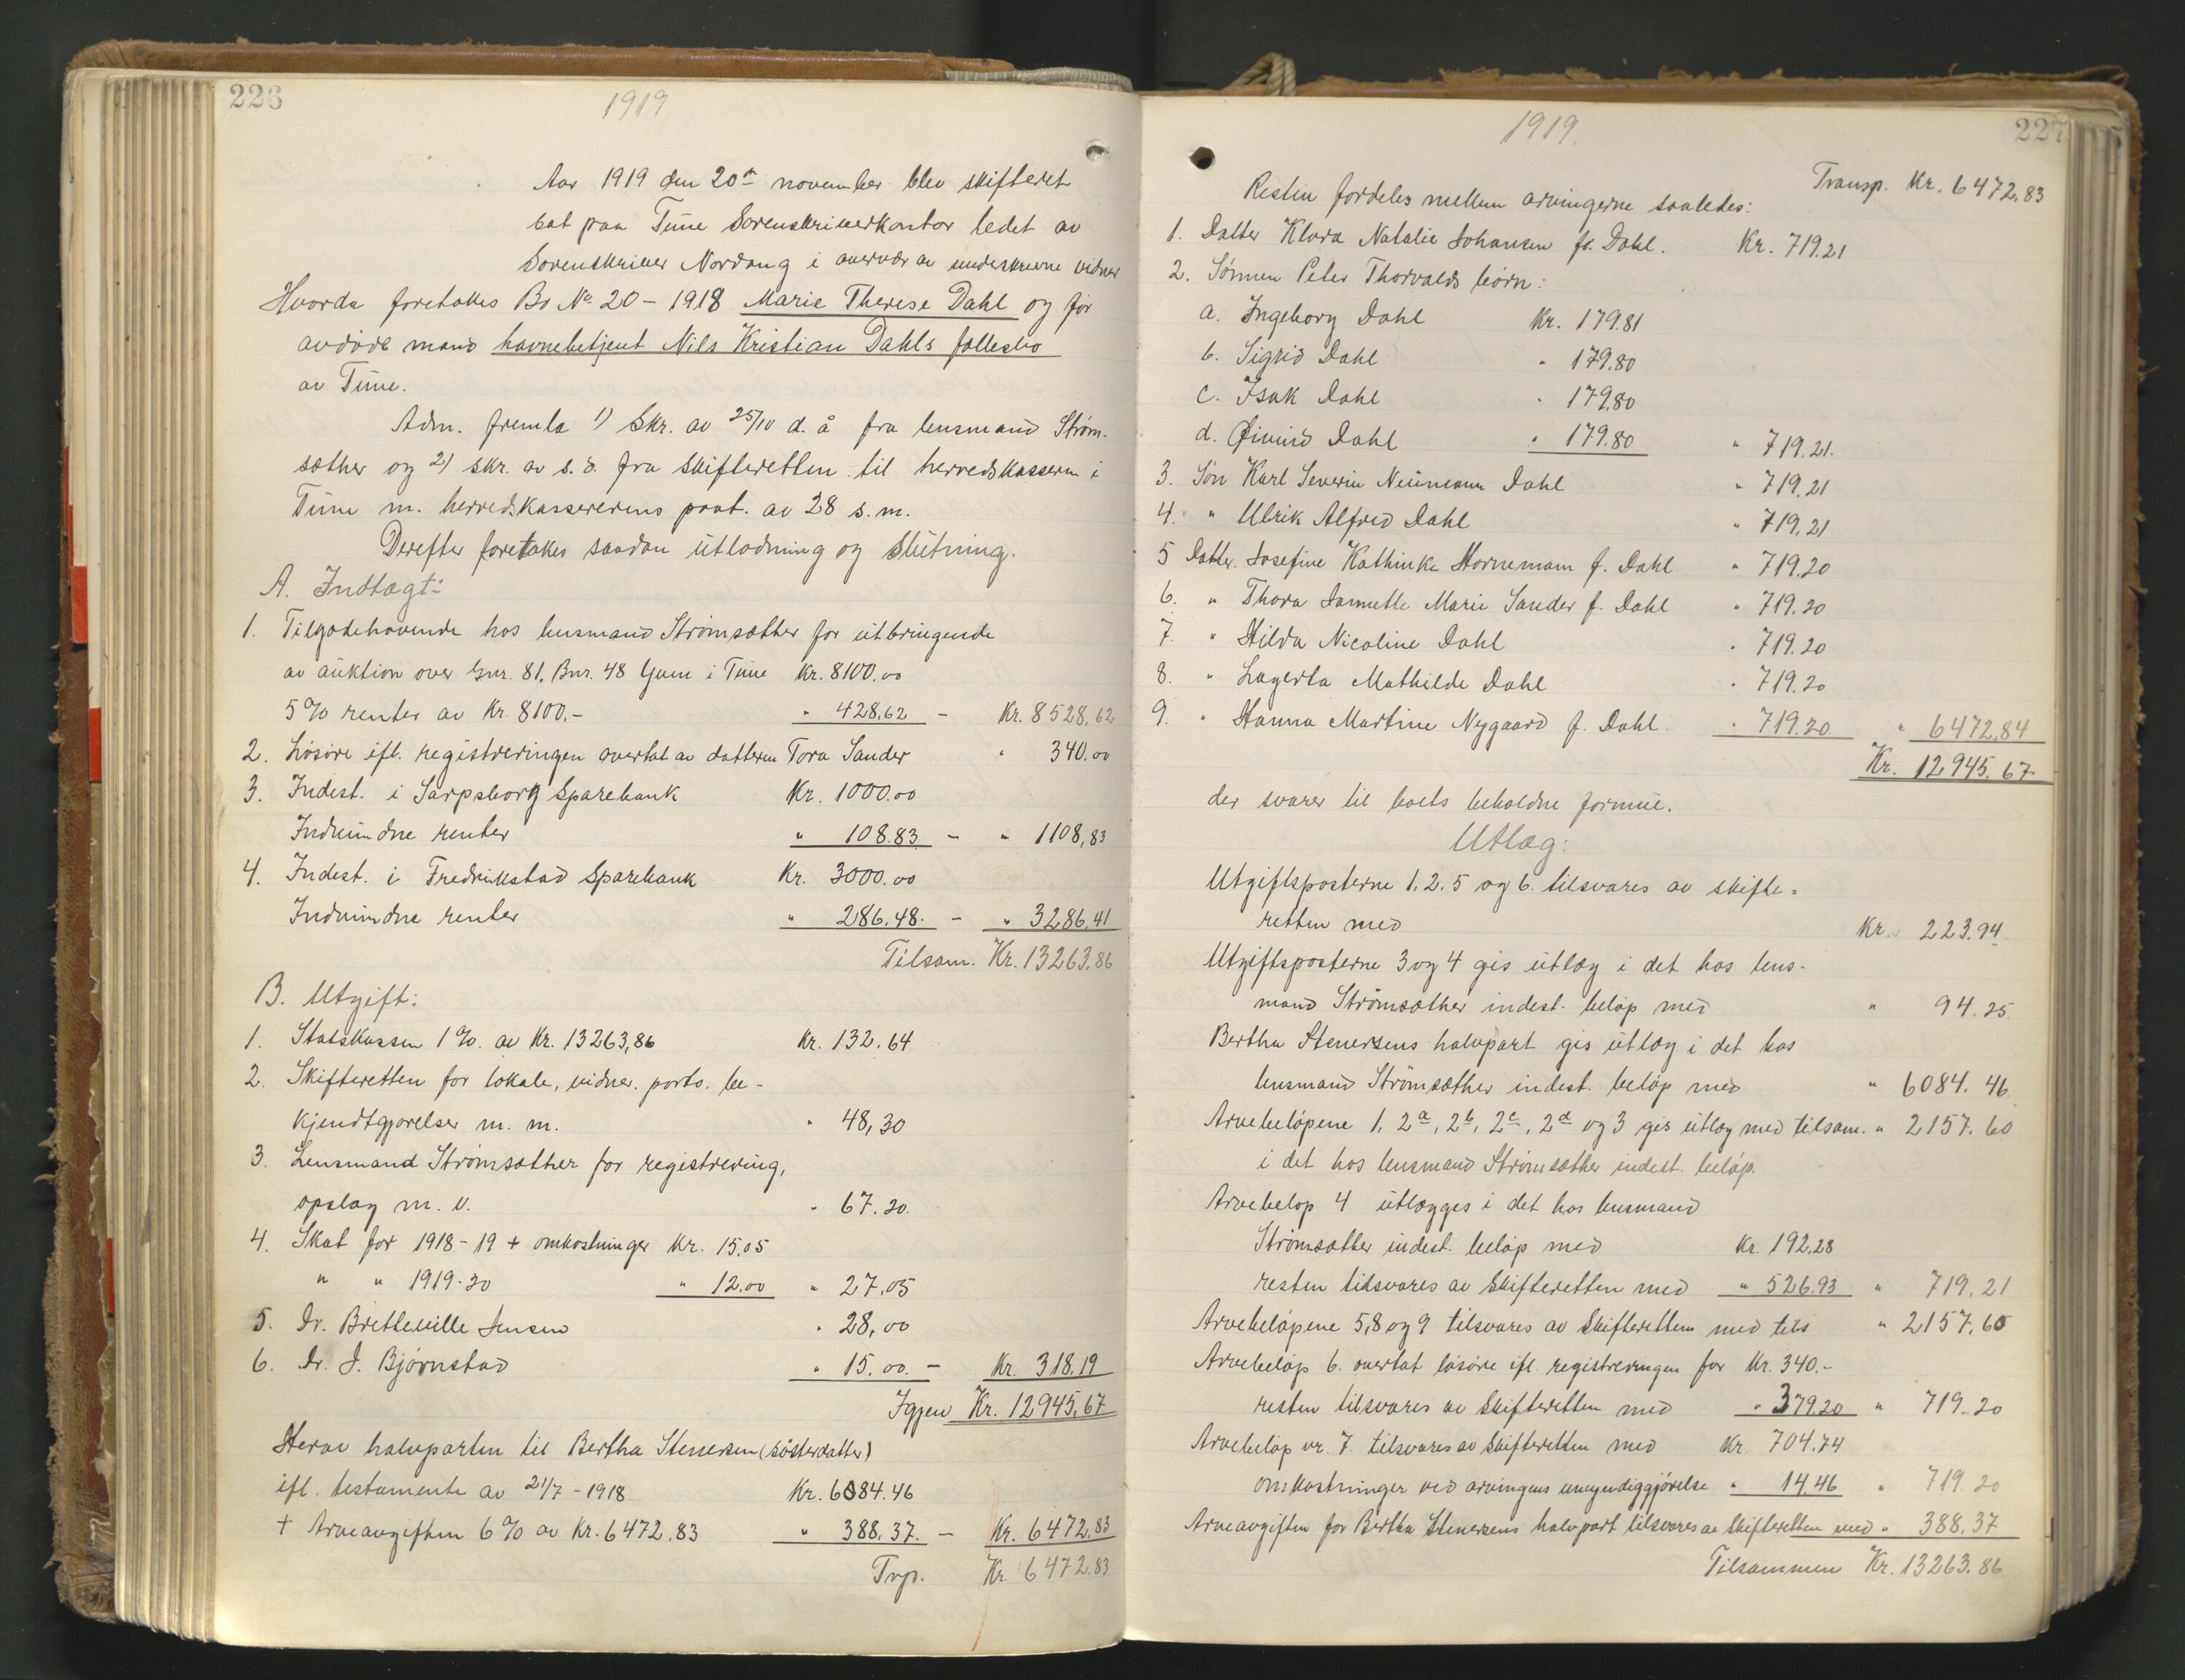 226
1919
Aar 1919 den 20de november blev skifteret
sat paa Tune Sorenskriverkontor ledet av
Sorenskriver Nordang i overvær av underskrevne vidner
Hvorda foretokes Bo No 20 - 1918 Marie Therese Dahl og før
avdøde mand havnebetjent Nils Kristian Dahls fællesbo
av Tune.
Adm. fremla 1) Skr. av 25/10 d. å fra lensmand Strøm-
sæther og 2) skr. av s. d. fra skifteretten til herredskasseren i
Tune m. herredskassererens paat. av 28 s. m.
Derefter foretokes saadan utlodning og slutning.
A. Indtægt:
1. Tilgodehavende hos lensmand Strømsæther for utbringende
av auktion over Gnr. 81, Bnr. 48 Yven i Tune Kr. 8100.00
5% renter av Kr. 8100.- " 428.62 - Kr. 8528,62
2. Løsøre ifl. registreringen overtat av datteren Tora Sander " 340.00
3. Indest. i Sarpsborg Sparebank Kr. 1000.00
Indvundne renter " 108.83 - " 1108,83
4. Indest. i Fredrikstad Sparebank Kr. 3000.00
Indvundne renter " 286.48 - " 3286.41
Tilsam. Kr. 13263,86
B. Utgift:
1. Statskassen 1%. av Kr. 13263,86 Kr. 132.64
2. Skifteretten for lokale, vidner, porto, be-
kjendtgjørelser m. m. " 48,30
3. Lensmand Strømsæther for registrering,
opslag m. v. " 67.20.
4. Skat for 1918-19 + omkostninger Kr. 15.05
" " 1919-20 " 12.00 " 27.05
5. Dr. Bretteville Jensen " 28,00
6. Dr. J. Bjørnstad " 15.00. - Kr. 318.19
Igjen Kr. 12945,67
Herav halvparten til Bertha Stenersen (søsterdatter)
ifl. testamente av 21/7 - 1918 Kr. 6084.46
+ Arveavgiften 6% av Kr. 6472.83 " 388.37. - Kr. 6472.83
Trp. Kr. 6472.83
1919.
227
Transp. Kr. 6472,83
Resten fordeles mellem arvingerne saaledes:
1. Datter Klara Natalie Johansen f. Dahl. Kr. 719.21
2. Sønnen Peter Thorvalds børn:
a. Ingeborg Dahl Kr. 179.81
b. Sigrid Dahl " 179.80
c. Isak Dahl " 179.80
d. Øivind Dahl " 179.80 " 719.21.
3. Søn Karl Severin Neumann Dahl " 719.21
4. " Ulrik Alfred Dahl " 719.21
5 Datter. Josefine Kathinka Hornemann f. Dahl " 719.20
6. " Thora Jannette Marie Sander f. Dahl " 719.20
7. " Hilda Nicoline Dahl " 719.20
8. " Lagerta Mathilde Dahl " 719.20
9. " Hanna Martine Nygaard f. Dahl. " 719.20 " 6472.84
Kr. 12945.67
der svarer til boets beholdne formue.
Utlæg:
Utgiftsposterne 1. 2. 5 og 6. tilsvares av skifte-
retten med Kr. 223.94
Utgiftsposterne 3 og 4 gis utlæg i det hos lens-
mand Strømsæther indest. beløp med " 94.25
Bertha Stenersens halvpart gis utlæg i det hos
lensmand Strømsæther indest. beløp med " 6084.46
Arvebeløpene 1, 2a, 2b, 2c, 2d og 3 gis utlæg med tilsam. " 2157.60
i det hos lensmand Strømsæther indest. beløp.
Arvebeløp 4 utlægges i det hos lensmand
Strømsæther indest. beløp med Kr. 192.28
resten tilsvares av Skifteretten med " 526.93 " 719.21
Arvebeløpene 5,8 og 9 tilsvares av Skifteretten med tils " 2157.60
Arvebeløp 6. overtat løsøre ifl. registreringen for Kr. 340.-
resten tilsvares av Skifteretten med " 379.20 " 719.20
Arvebeløp nr. 7. tilsvares av Skifteretten med Kr. 704.74
omkostninger ved arvingens umyndiggjørelse " 14.46 " 719.20
Arveavgiften for Bertha Stenersens halvpart tilsvares av Skifteretten med " 388.37
Tilsammen Kr. 13263.86